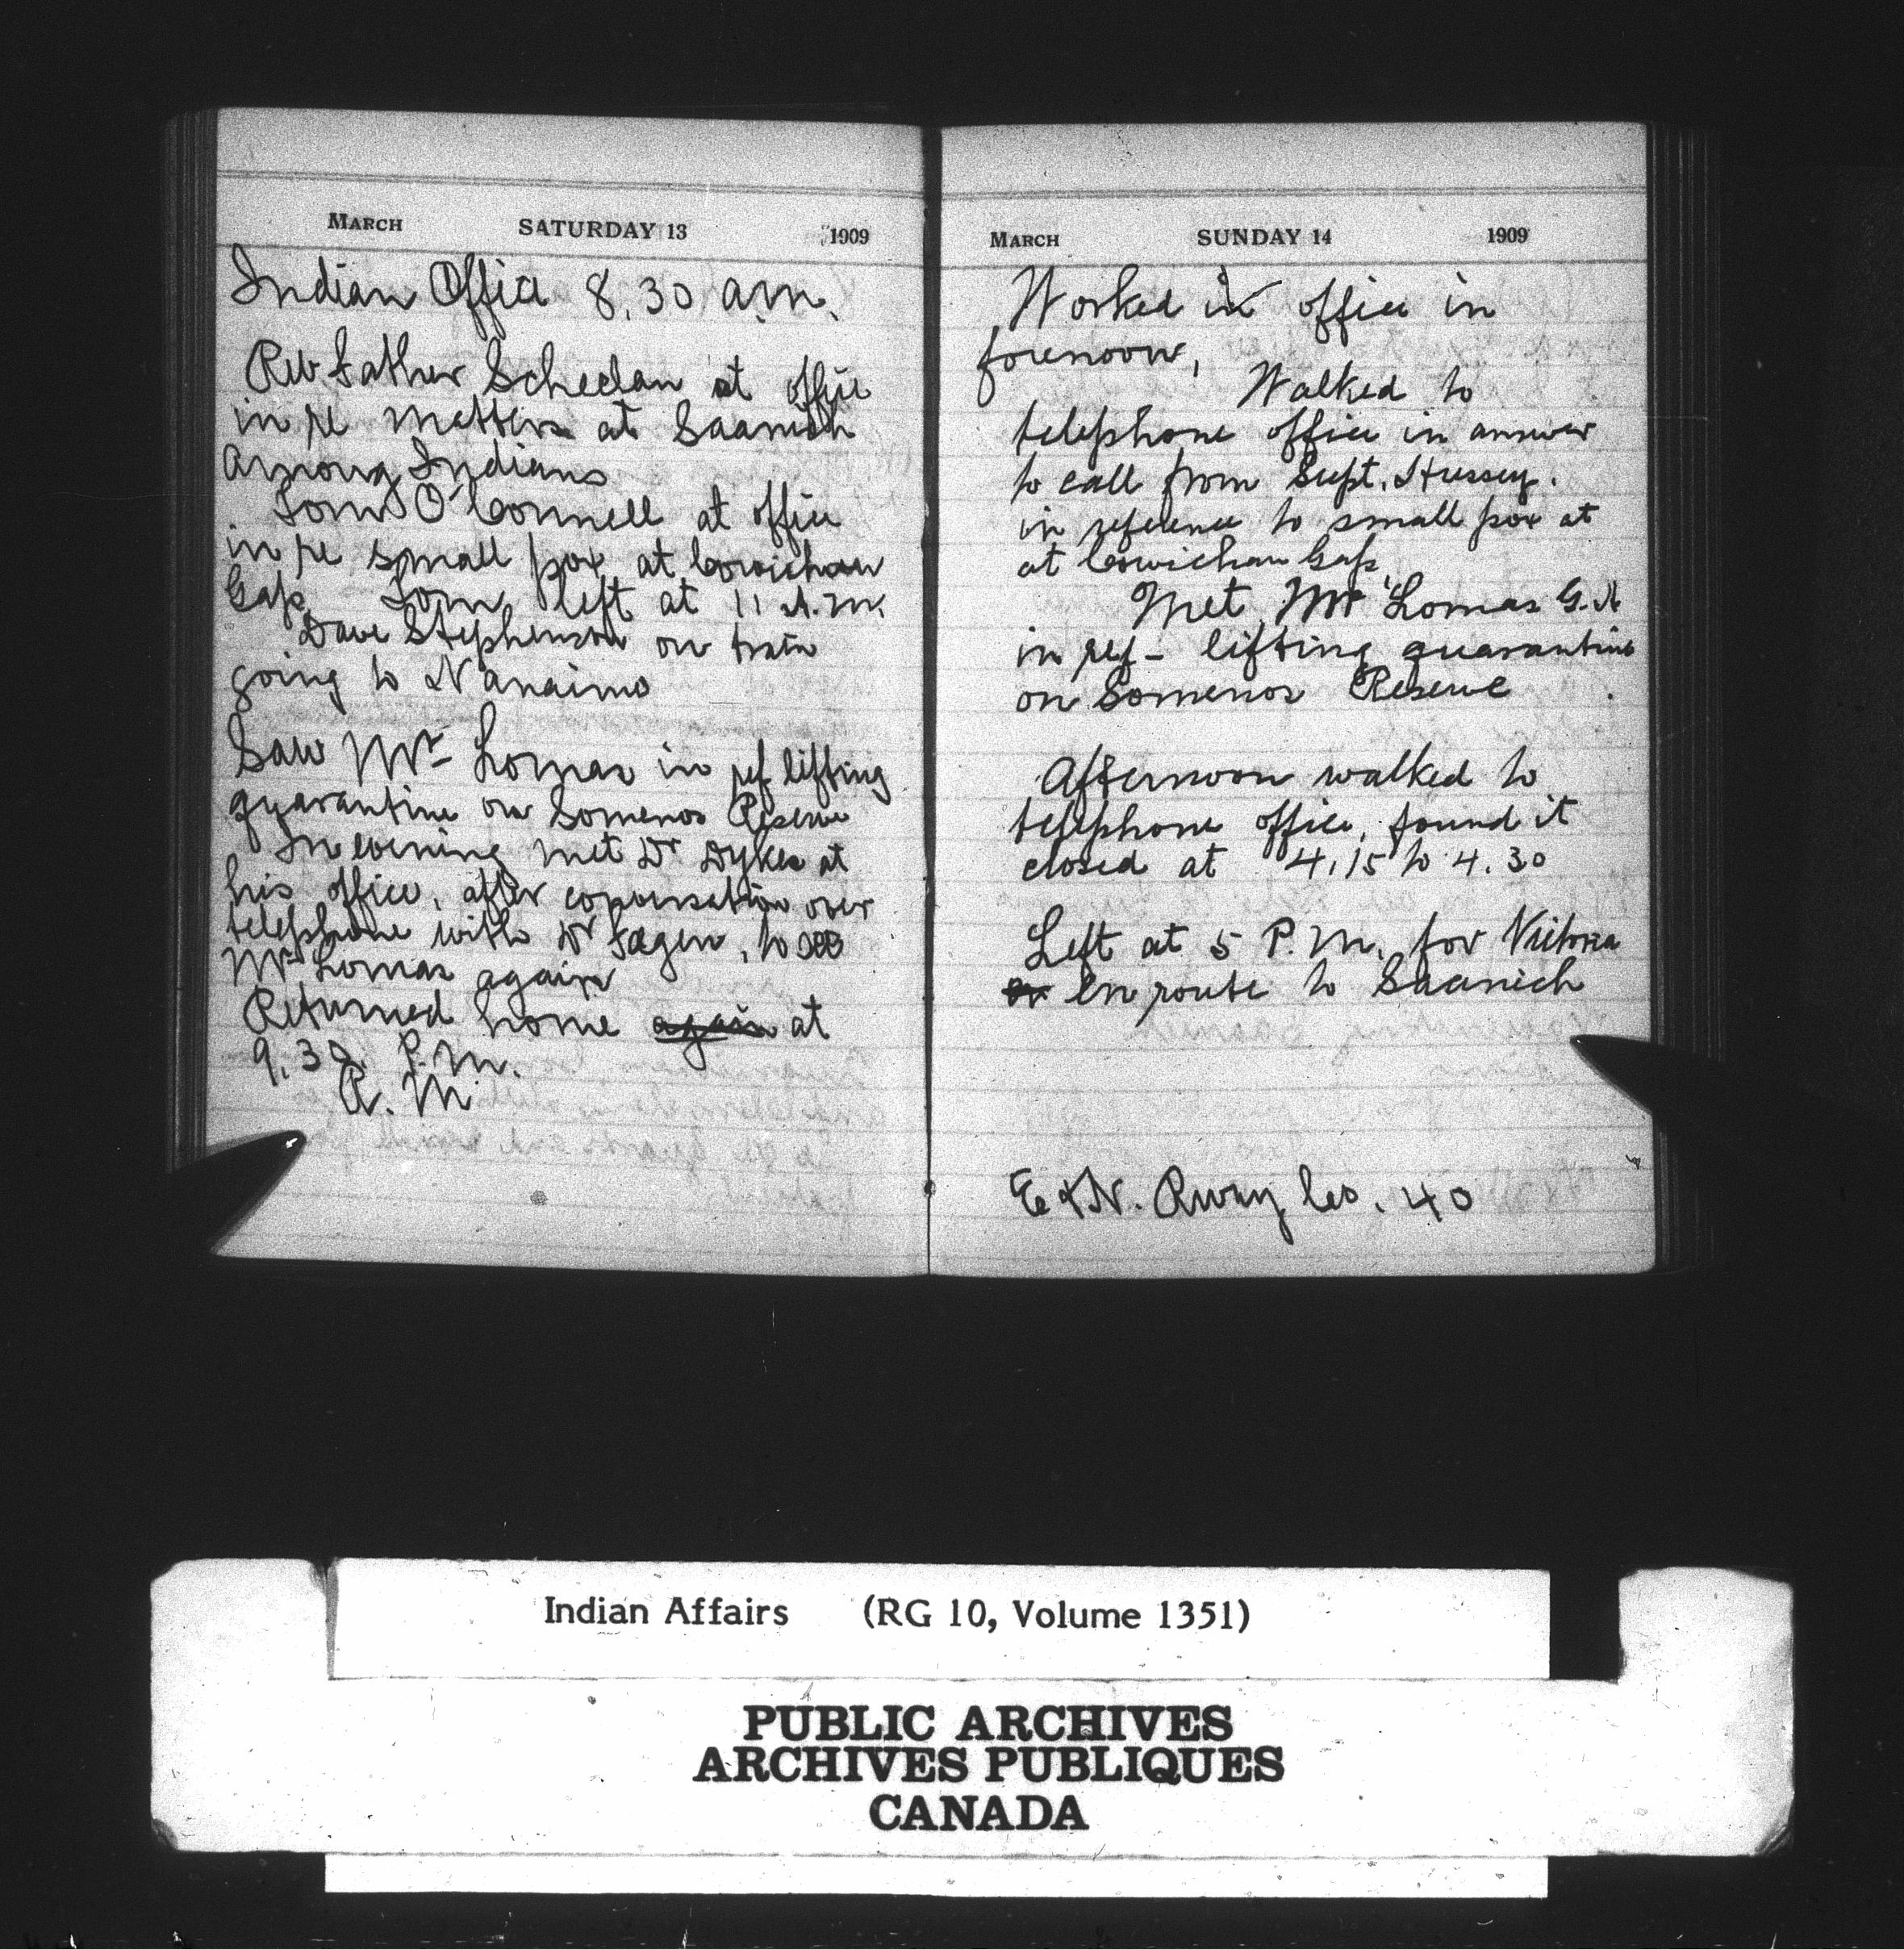 MARCH SATURDAY 13 1909
Indian Office 8.30 a.m.
Rev Father Schelan at office
in re matters at Saanich
Among Indians
Tom O'Connell at office
in re small pox at Cowichan
Gap. Tom left at 11 A.M.
Dave Stephenson on train
going to Nanaimo
Saw Mr Lomas in ref lifting
quarantine on Somenos Reserve
In evening met Dr Dykes at
his office, after conversation over
telephone with Dr Fagen, to see
Mr Lomas again
Returned home again at
9.30. P.M.
R. M
MARCH SUNDAY 14 1909
Worked in office in
forenoon,
Walked to
telephone office in answer
to call from Supt. Hussey.
in reference to small pox at
at Cowichan Gap
Met Mr Lomas G. A
in ref - lifting quarantine
on Somenos Reserve
Afternoon walked to
telephone office, found it
closed at 4.15 to 4.30
Left at 5 P.M. for Victoria
en route to Saanich
E & N. Rway Co. 40
Indian Affairs (RG 10, Volume 1351)
PUBLIC ARCHIVES
ARCHIVES PUBLIQUES
CANADA